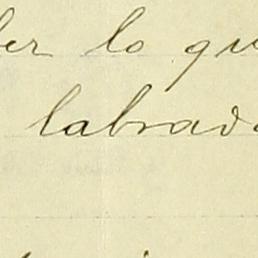 der lo qu
labrad